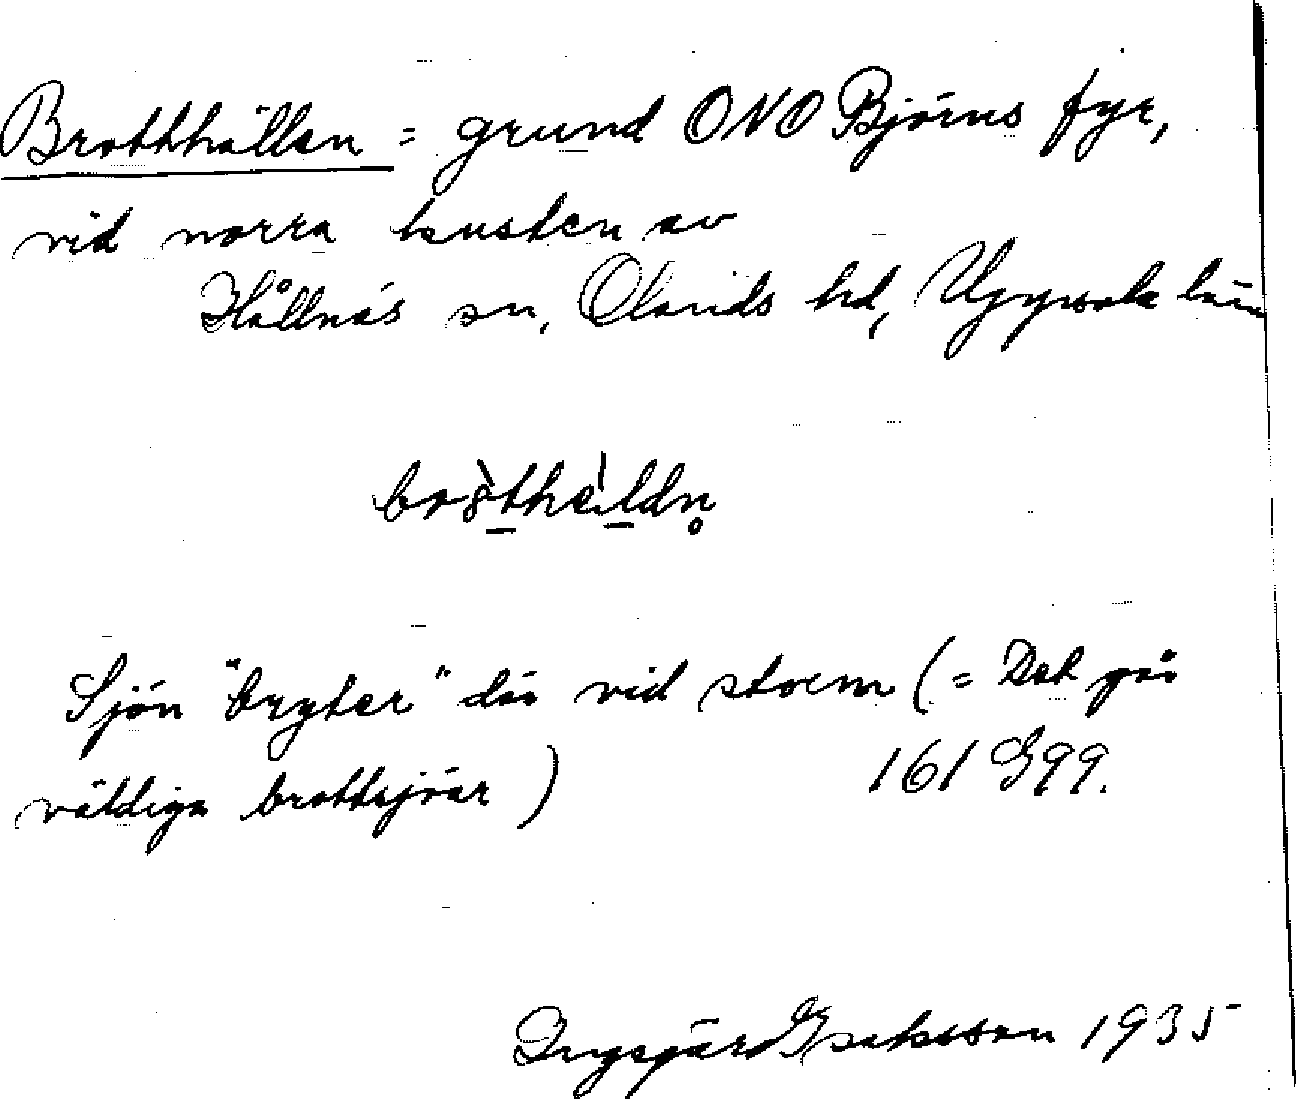 Brotthällen = grund ONO Björns fyr,
vid norra kusten av
Hållnäs sn, Olands hd, Uppsala län
Sjön "bryter" där vid storm (= Det går
väldiga brottsjöar)
161 G99.
Ingegärd Isaksson 1935